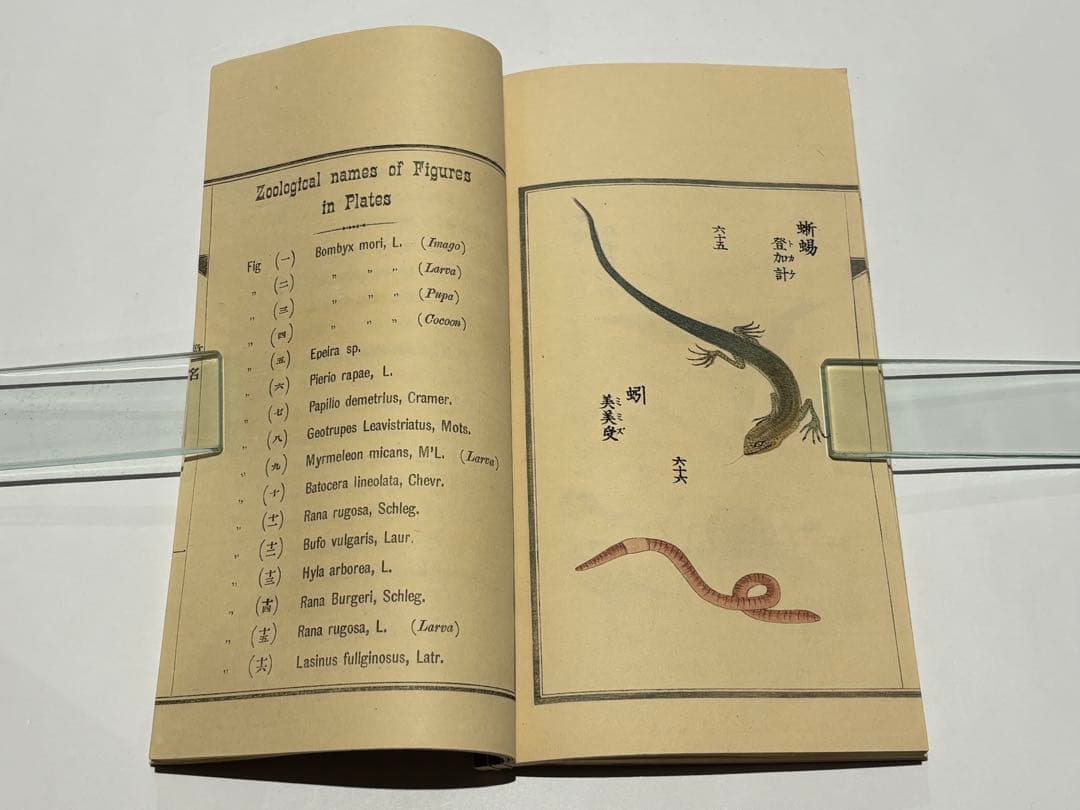 Zoological names of Figures
in Plates
Fig (一) Bombyx mori, L. (Imago)
„ (二) „ „ „ (Larva)
„ (三) „ „ „ (Pupa)
„ (四) „ „ „ (Cocoon)
„ (五) Epeira sp.
„ (六) Pierio rapae, L.
„ (七) Papilio demetrius, Cramer.
„ (八) Geotrupes Leavistriatus, Mots.
„ (九) Myrmeleon micans, M'L. (Larva)
„ (十) Batocera lineolata, Chevr.
„ (十一) Rana rugosa, Schleg.
„ (十二) Bufo vulgaris, Laur.
„ (十三) Hyla arborea, L.
„ (十四) Rana Burgeri, Schleg.
„ (十五) Rana rugosa, L. (Larva)
„ (十六) Lasinus fuliginosus, Latr.
名
蜥蜴
登加計
トカゲ
六十五
蚓
美美受
ミミズ
六十六